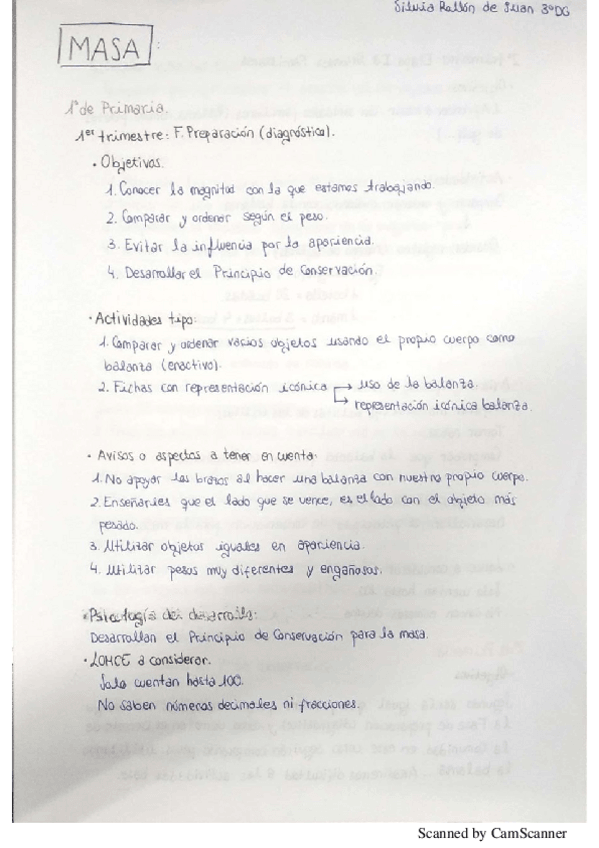 Silvia Rallón de Juan 3ºDG
MASA:
1º de Primaria.
1er trimestre: F. Preparación (diagnóstica).
· Objetivos:
1. Conocer la magnitud con la que estamos trabajando.
2. Comparar y ordenar según el peso.
3. Evitar la influencia por la apariencia.
4. Desarrollar el Principio de Conservación.
· Actividades tipo:
1. Comparar y ordenar varios objetos usando el propio cuerpo como
balanza (enactivo).
2. Fichas con representación icónica → uso de la balanza.
→ representación icónica balanza.
· Avisos o aspectos a tener en cuenta:
1. No apoyar los brazos al hacer una balanza con nuestro propio cuerpo.
2. Enseñarles que el lado que se vence, es el lado con el objeto más
pesado.
3. Utilizar objetos iguales en apariencia.
4. Utilizar pesos muy diferentes y engañosos.
· Psicología del desarrollo:
Desarrollan el Principio de Conservación para la masa.
· LOMCE a considerar.
Solo cuentan hasta 100.
No saben números decimales ni fracciones.
Scanned by CamScanner